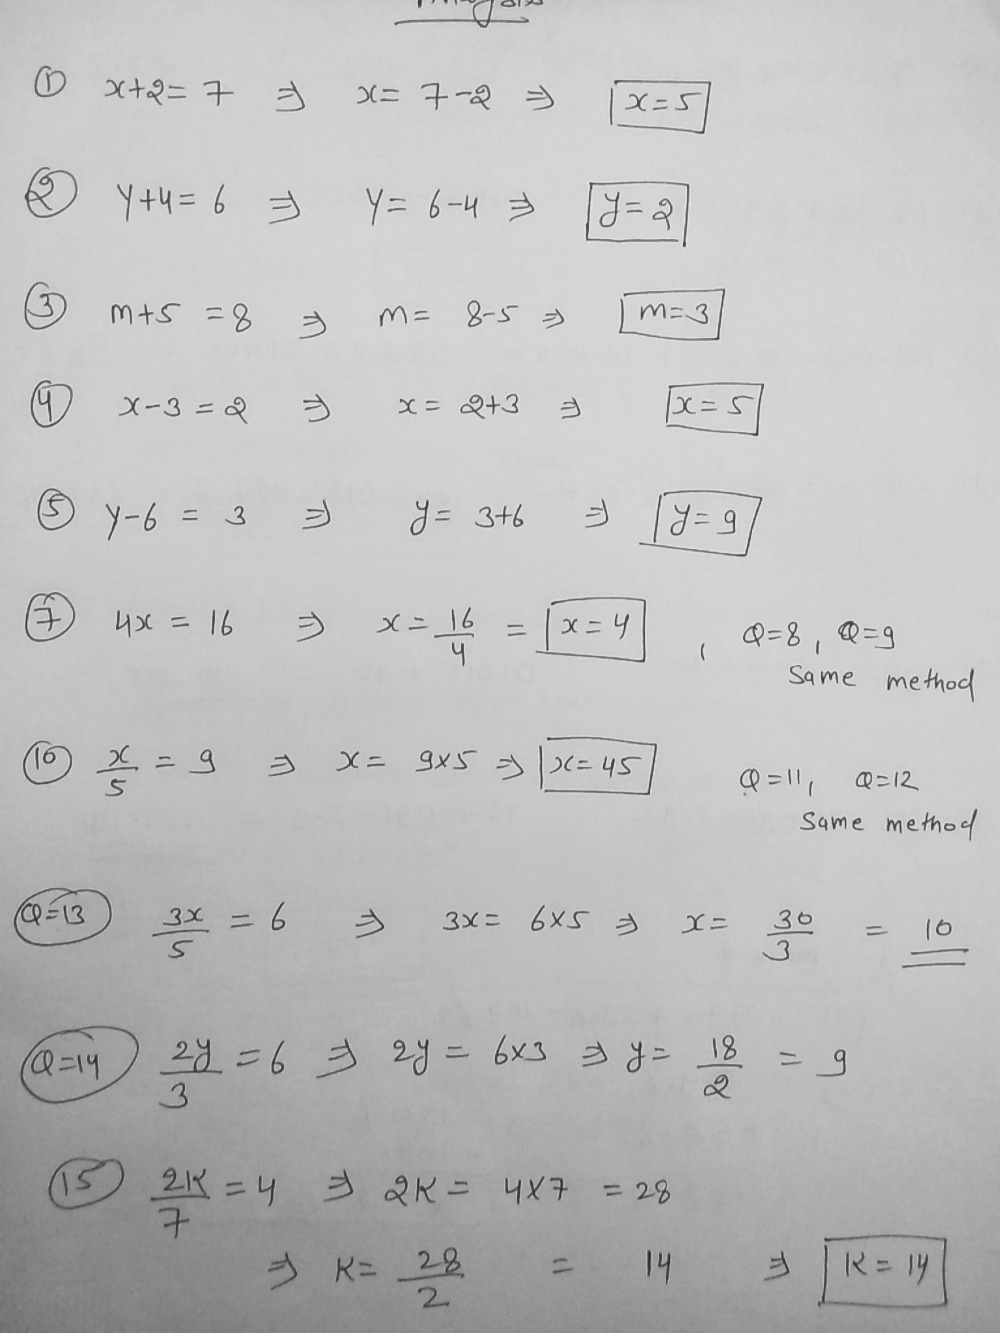 ① x+2=7 ⇒ x= 7-2 ⇒ x=5
② y+4=6 ⇒ y= 6-4 ⇒ y=2
③ m+5 =8 ⇒ m= 8-5 ⇒ m=3
④ x-3=2 ⇒ x= 2+3 ⇒ x=5
⑤ y-6 = 3 ⇒ y= 3+6 ⇒ y=9
⑦ 4x = 16 ⇒ x= 16/4 = x=4 , Q=8, Q=9
Same method
⑩ x/5 = 9 ⇒ x= 9×5 ⇒ x=45 Q=11, Q=12
Same method
Q=13 3x/5 = 6 ⇒ 3x= 6×5 ⇒ x= 30/3 = 10
Q=14 2y/3 = 6 ⇒ 2y = 6×3 ⇒ y= 18/2 = 9
15 2K/7 = 4 ⇒ 2K = 4×7 = 28
⇒ K= 28/2 = 14 ⇒ K=14